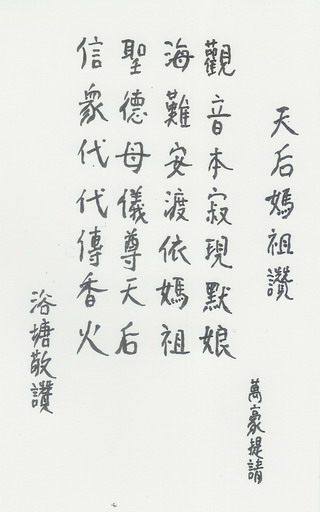 天后媽祖讚
萬豪提請
觀音本寂現默娘
海難安渡依媽祖
聖德母儀尊天后
信眾代代傳香火
浴塘敬讚